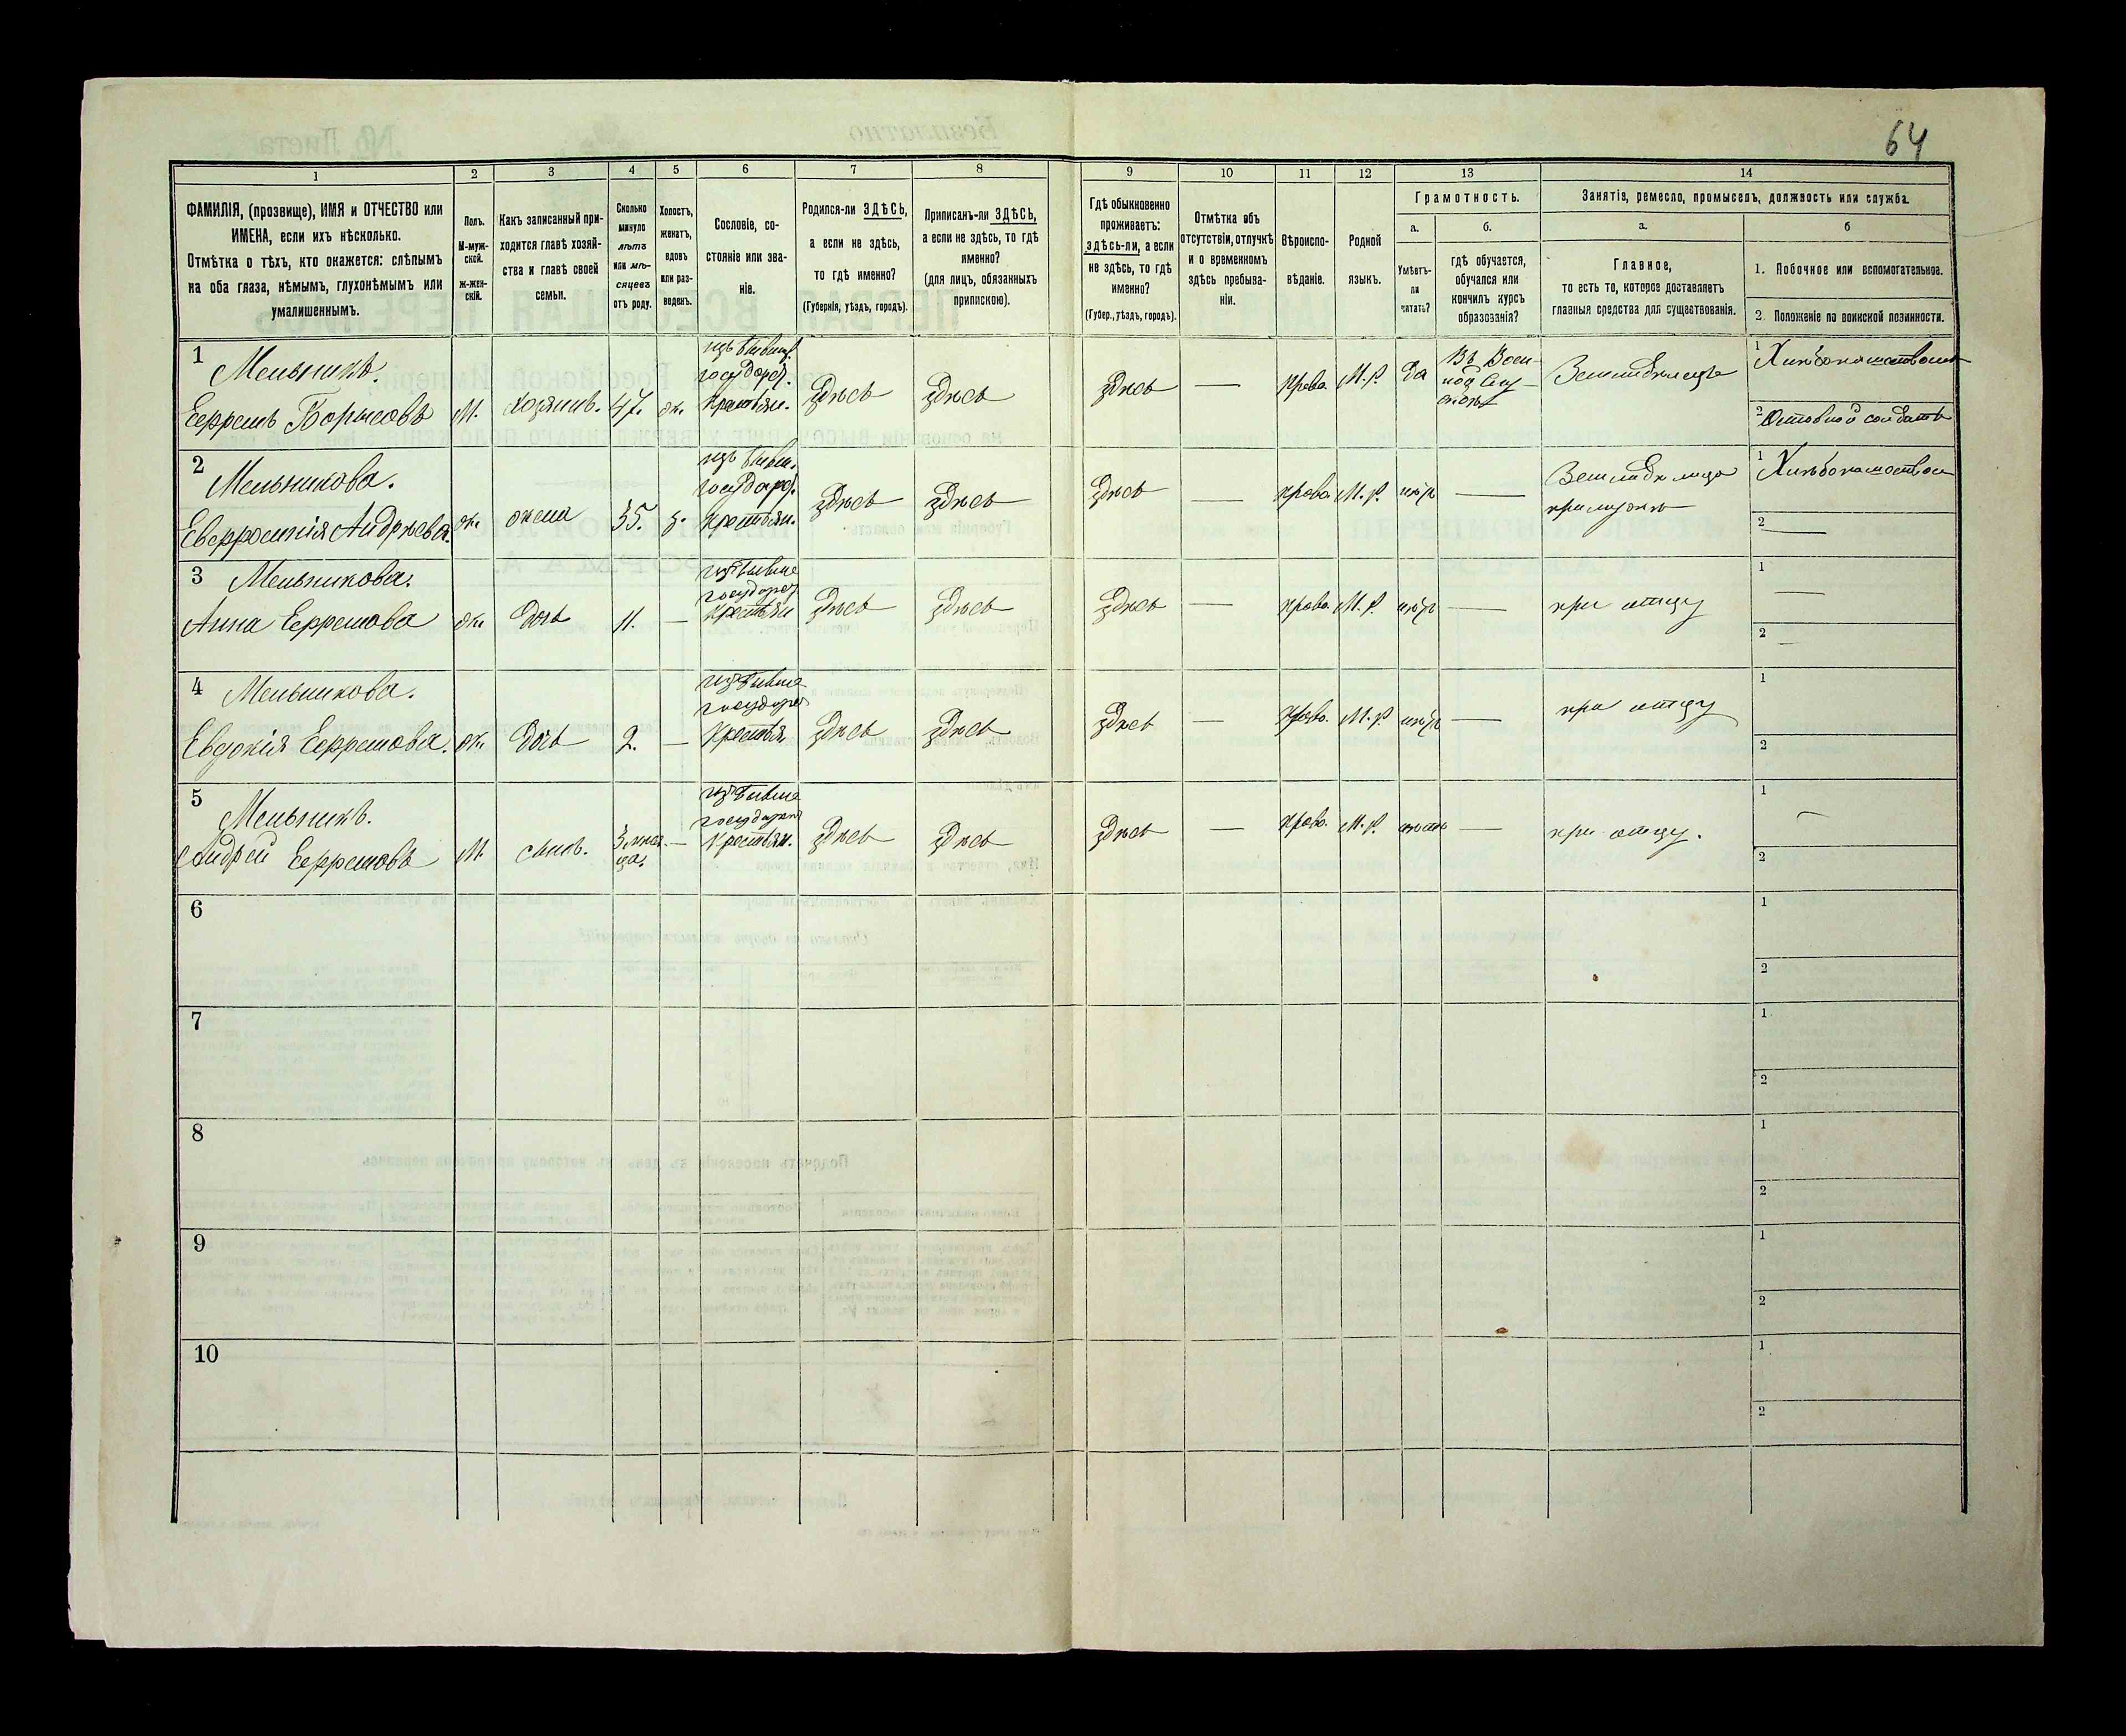 64
1 2 3 4 5 6 7 8 9 10 11 12 13 14
ФАМИЛІЯ, (прозвище), ИМЯ и ОТЧЕСТВО или
ИМЕНА, если ихъ нѣсколько.
Отмѣтка о тѣхъ, кто окажется: слѣпымъ
на оба глаза, нѣмымъ, глухонѣмымъ или
умалишеннымъ.
Полъ.
М-муж-
ской.
ж-жен-
скій.
Какъ записанный при-
ходится главѣ хозяй-
ства и главѣ своей
семьи.
Сколько
минуло
лѣтъ
или мѣ-
сяцевъ
отъ роду.
Холостъ,
женатъ,
вдовъ
или раз-
веденъ.
Сословіе, со-
стояніе или зва-
ніе.
Родился-ли ЗДѢСЬ,
а если не здѣсь,
то гдѣ именно?
(Губернія, уѣздъ, городъ).
Приписанъ-ли ЗДѢСЬ,
а если не здѣсь, то гдѣ
именно?
(для лицъ, обязанныхъ
припискою).
Гдѣ обыкновенно
проживаетъ:
здѣсь-ли, а если
не здѣсь, то гдѣ
именно?
(Губер., уѣздъ, городъ).
Отмѣтка объ
отсутствіи, отлучкѣ
и о временномъ
здѣсь пребыва-
ніи.
Вѣроиспо-
вѣданіе.
Родной
языкъ.
Грамотность.
а.
Умѣетъ-
ли
читать?
б.
гдѣ обучается,
обучался или
кончилъ курсъ
образованія?
Занятія, ремесло, промыселъ, должность или служба.
а.
Главное,
то есть то, которое доставляетъ
главныя средства для существованія.
б
1. Побочное или вспомогательное.
2. Положеніе по воинской повинности.
1 Мельникъ.
Ефремъ Борисовъ М. хозяинъ. 47. ж.
изъ бывш.
государ.
крестьян.
здѣсь здѣсь здѣсь — право. М.р. да
Въ Воен
Земледѣлецъ
1
2
2 Мельникова.
Евфросинія Андреева. ж. жена 35. з.
изъ бывш.
государ.
крестьян.
здѣсь здѣсь здѣсь — право. М.р. —
Земледѣлица
при мужѣ
1
2 —
3 Мельникова.
Анна Ефремова ж. дочь 11. —
изъ бывше
государ
крестьян
здѣсь здѣсь здѣсь — право. М.р. —
при отцу
1 —
2 —
4 Мельникова.
Евдокія Ефремова. ж. дочь 2. —
изъ бывше
государ
крестья
здѣсь здѣсь здѣсь — право. М.р —
при отцу
1
2
5 Мельникъ.
Андрей Ефремовъ М. сынъ. 3 —
изъ бывше
государ
крестьян.
здѣсь здѣсь здѣсь — право. М.р. —
при отцу.
1 —
2
6
1
2
7
1
2
8
1
2
9
1
2
10
1
2